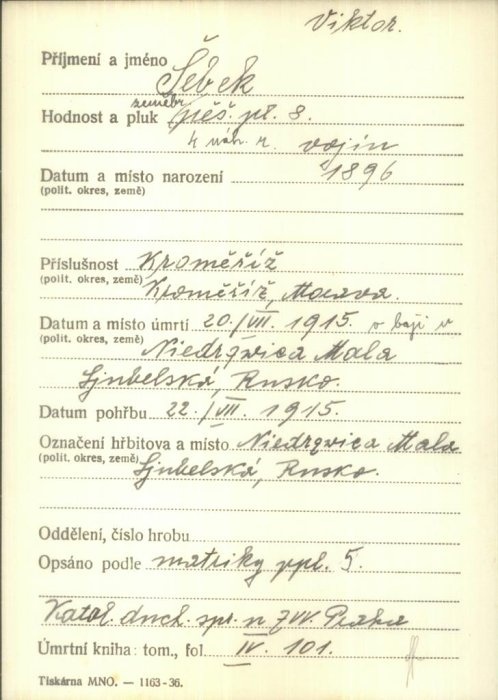 Viktor.
Příjmení a jméno Šebek
zeměbr.
Hodnost a pluk pěš. pl. 8.
4 náh. r. vojín
Datum a místo narození 1896
(polit. okres, země)
Příslušnost Kroměříž
(polit. okres, země) Kroměříž, Morava.
Datum a místo úmrtí 20./VII. 1915. v boji v
(polit. okres, země) Niedrqwica Mala
Ljubelská, Rusko.
Datum pohřbu 22./VII. 1915.
Označení hřbitova a místo Niedrqwica Mala
(polit. okres, země) Ljubelská, Rusko.
Oddělení, číslo hrobu
Opsáno podle matriky ppl. 5.
Katol. duch. spr. n ZVV. Praha
Úmrtní kniha: tom., fol. IV. 101.
Tiskárna MNO. — 1163-36.